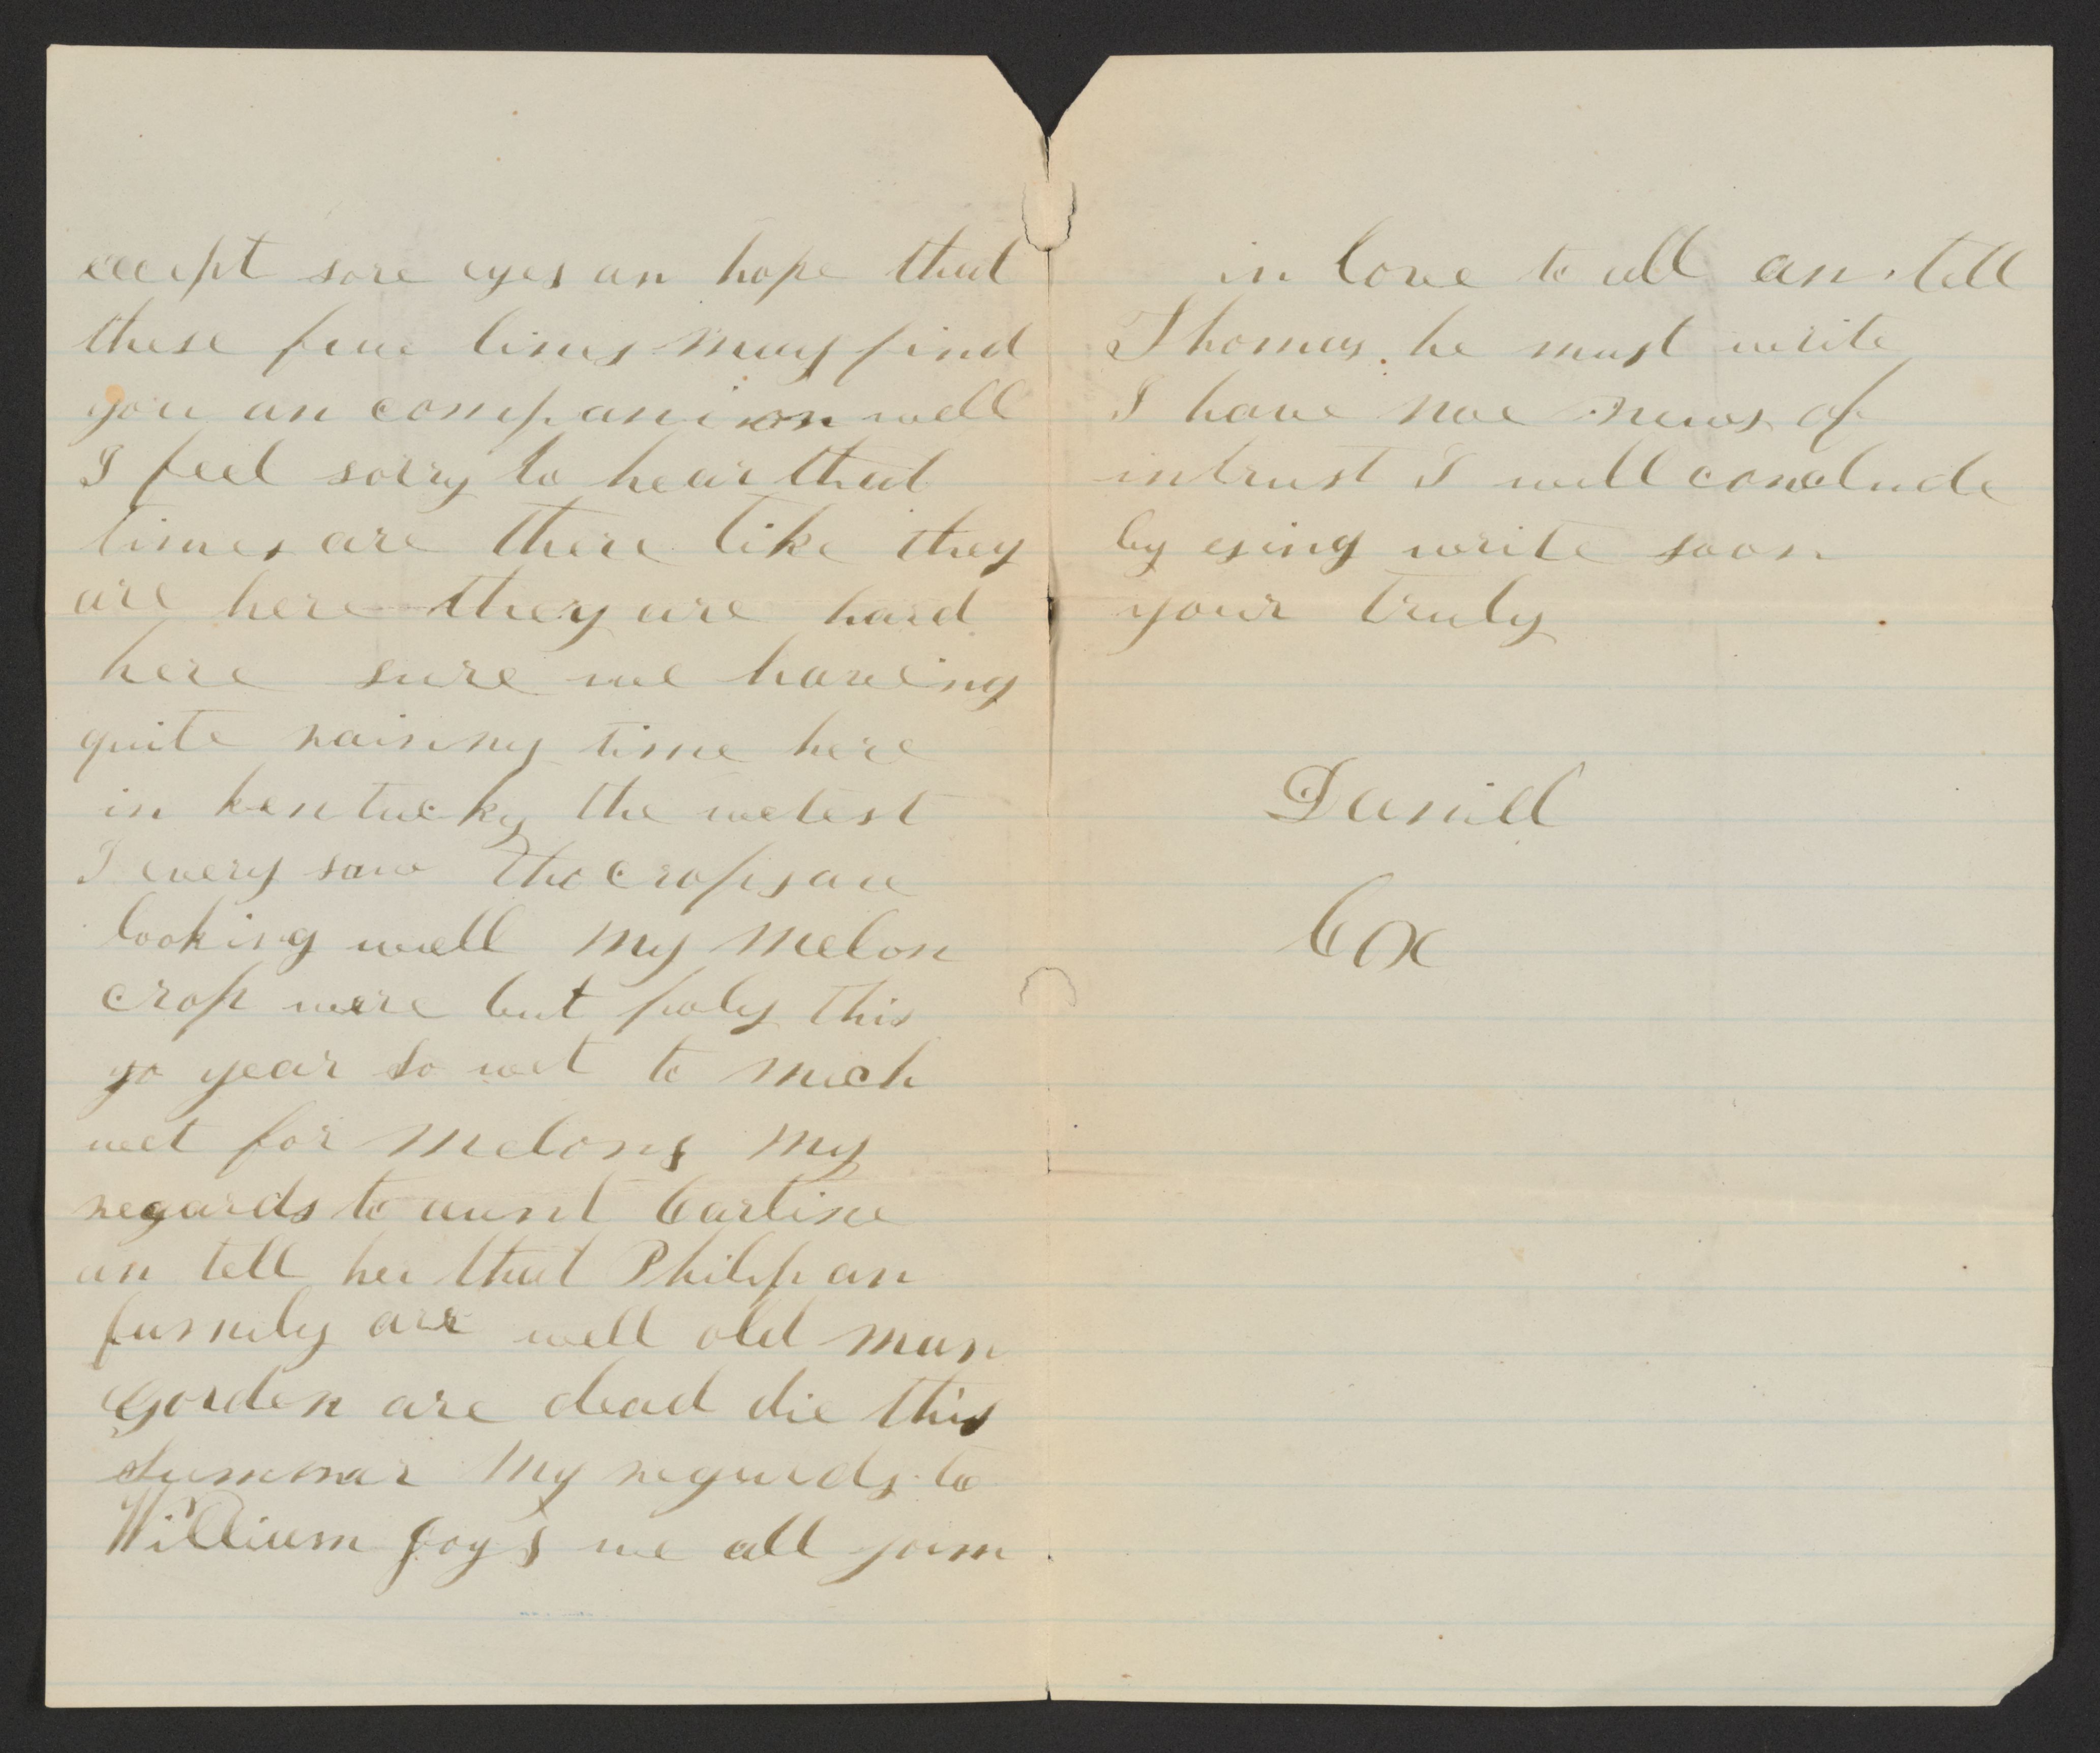 except sore eyes an hope that
these fue lines may find
you an companion well
I feel sorry to hear that
times are there like they
are here they are hard
here sure we haveing
quite rainny time here
in kentucky the wetest
I every saw the crops are
looking well my melon
crop were but poly this
yo year so wet to much
wet for melons my
regards to aunt Carline
an tell her that Philip an
family are well old man
Gorden are dead die this
summar my regards to
William Joys we all join
in love to all an tell
Thomas he must write
I have noe news of
intrust I will conclude
by esing write soon
your truly
Daniell
Cox